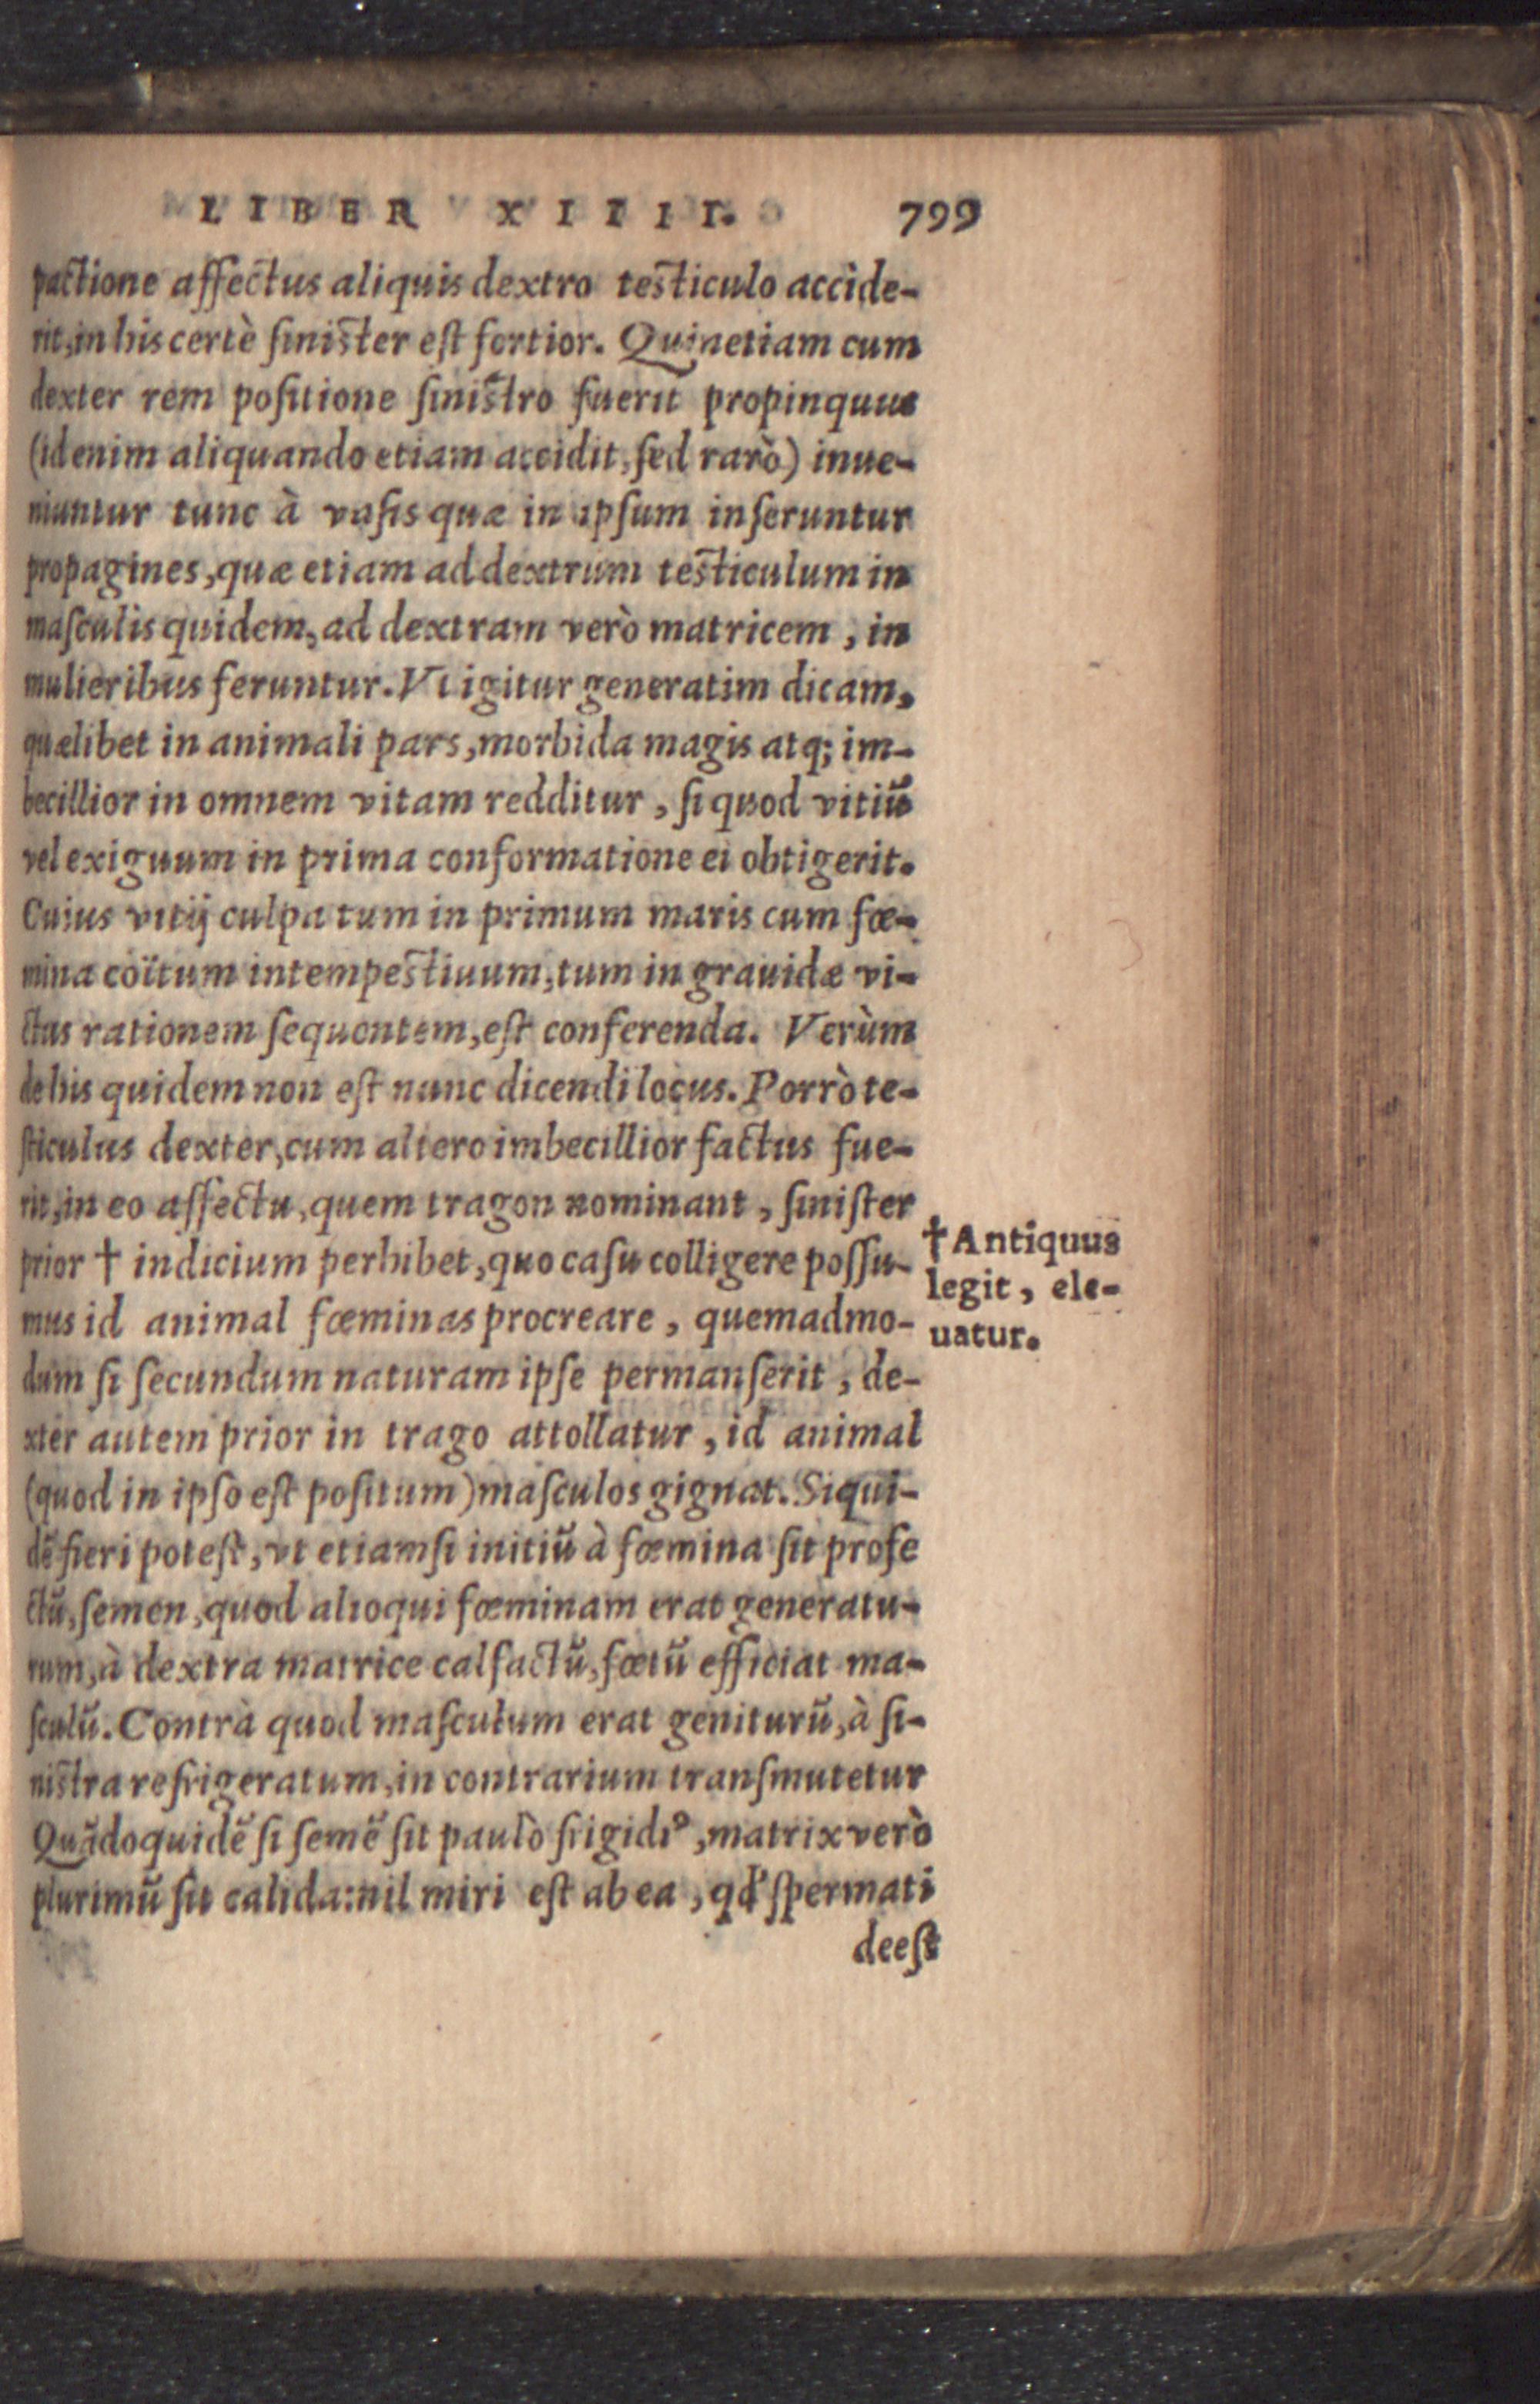 LIBER XIIII. 799
pactione affectus aliquis dextro testiculo accide-
rit, in his certè sinister est fortior. Quinetiam cum
dexter rem positione sinistro fuerit propinquus
(id enim aliquando etiam accidit, sed rarò) inue-
niuntur tunc à vasis quæ in ipsum inseruntur
propagines, quæ etiam ad dextrum testiculum in
masculis quidem, ad dextram verò matricem, in
mulieribus feruntur. Vt igitur generatim dicam,
quælibet in animali pars, morbida magis atq; im-
becillior in omnem vitam redditur, si quod vitiũ
vel exiguum in prima conformatione ei obtigerit.
Cuius vitij culpa tum in primum maris cum fœ-
mina coïtum intempestiuum, tum in grauidæ vi-
ctus rationem sequentem, est conferenda. Verùm
de his quidem non est nunc dicendi locus. Porrò te-
sticulus dexter, cum altero imbecillior factus fue-
rit, in eo affectu, quem tragon nominant, sinister
prior † indicium perhibet, quo casu colligere possu-
mus id animal fœminas procreare, quemadmo-
dum si secundum naturam ipse permanserit, de-
xter autem prior in trago attollatur, id animal
(quod in ipso est positum) masculos gignat. Siqui-
dẽ fieri potest, vt etiamsi initiũ à fœmina sit profe
ctũ, semen, quod alioqui fœminam erat generatu-
rum, à dextra matrice calfactũ, fœtũ efficiat ma-
sculũ. Contrà quod masculum erat geniturũ, à si-
nistra refrigeratum, in contrarium transmutetur
Quãdoquidẽ si semẽ sit paulò frigidiꝰ, matrix verò
plurimũ sit calida: nil miri est ab ea, qđ spermati
deest
†Antiquus
legit, ele-
uatur.